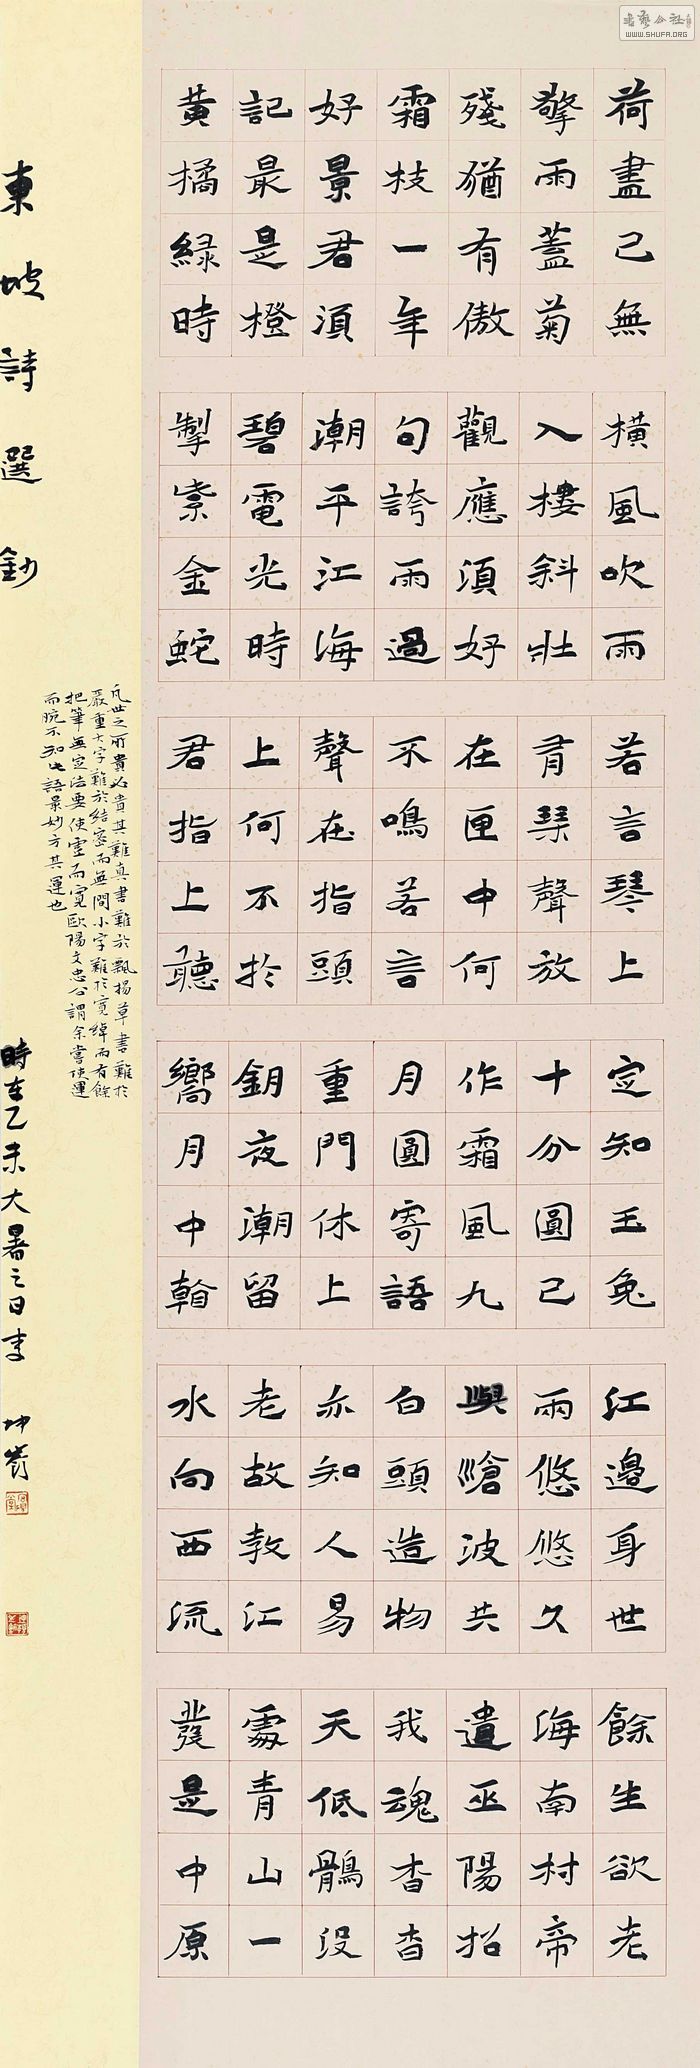 書藝公社
WWW.SHUFA.ORG
荷盡已無
擎雨蓋菊
殘猶有傲
霜枝一年
好景君須
記最是橙
黃橘緑時
橫風吹雨
入樓斜壯
觀應須好
句誇雨過
潮平江海
碧電光時
掣紫金蛇
若言琴上
有琴聲放
在匣中何
不鳴若言
聲在指頭
上何不於
君指上聽
定知玉兔
十分圓已
作霜風九
月圓寄語
重門休上
鈅夜潮留
嚮月中䡓
江邊身世
兩悠悠久
與滄波共
白頭造物
亦知人易
老故教江
水向西流
餘生欲老
海南村帝
遣巫陽招
我魂杳杳
天低鶻没
處青山一
發是中原
東坡詩選鈔
凡世之所貴必貴其難真書難於飄揚草書難於
嚴重大字難於結密而無間小字難於寬綽而有餘
把筆無定法要使虛而寬歐陽文忠公謂余當使運
而腕不知此語最妙方其運也
時在乙未大暑之日李坤